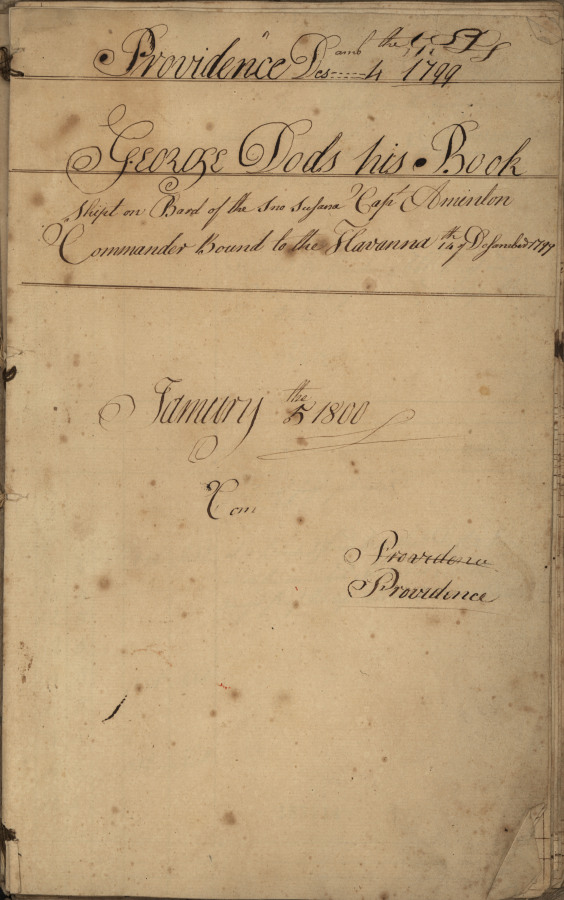 Providence Des 4 1799
George Dods his Book
Shipt on Bard of the Sno Susana Capt Aminton
Commander Bound to the Havanna the 14
January the 5 1800
Com
Providence
Providence